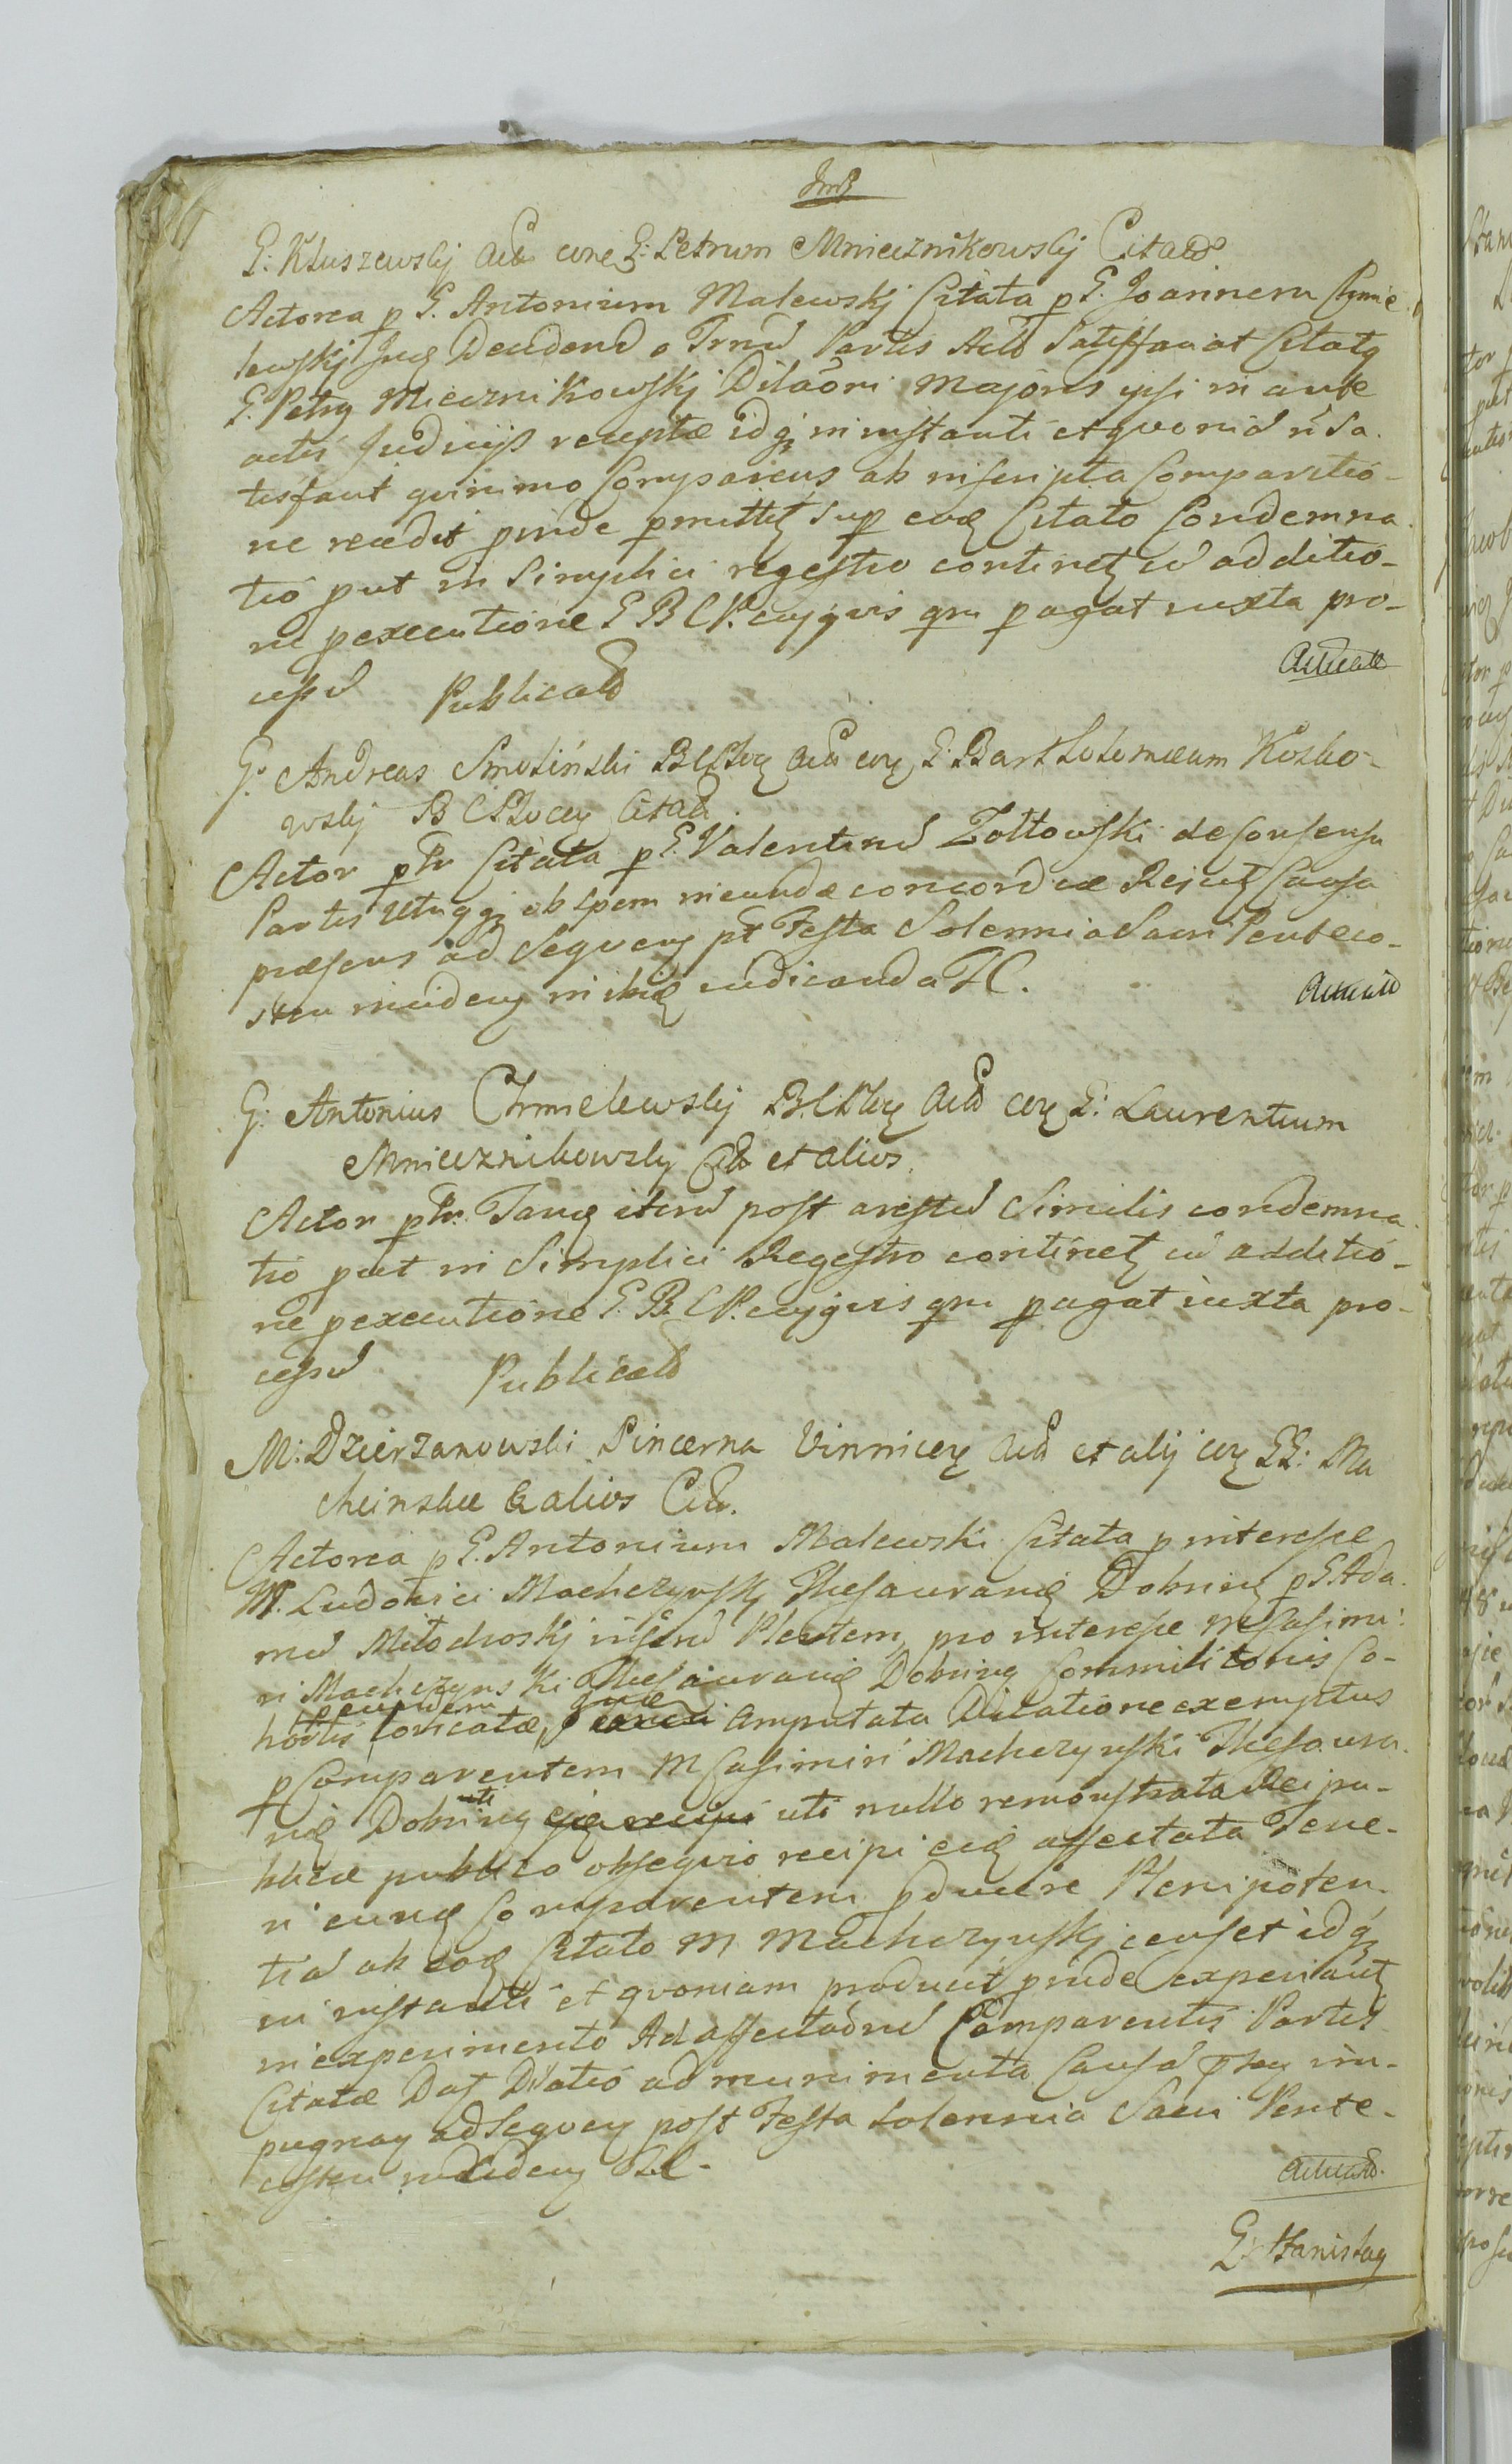 G: Kłuszewsky Act̃ con̄ G: Petrum Mniecznikowsky Citatõ
Actorea p G. Antonium Malewskj Citata p G. Joannem Chmie
lewskj Decidend o Partis Act Satisfaciat Citatq
G. Petrq Miecznikowskj Dilaõni Majoris ipsi in ante
actis Judicijs receptæ idq in instanti et quoniã ñ Sa
tisfacit quinimo Comparens ab inscripta Comparitio-
ne recedit pinde pmittit Sup eoq Citato Condemna
tio put in Simplici regestro continetq cũ additio-
ne pexecutione G B C P. cujqvis qm pagat iuxta pro-
cessũ Publicatõ
G. Andreas Smoliński BCPłocq Act coq G: Bartholomæum Kosko-
wsky B C Płocen Citatũ
Actor ptr Citata p G. Valentinũ Zołtowski de Consensu
Partis Utriqq ob spem ineundæ concordiæ Rejicitq Causa
præsens ad Sequenq pt Festa Solennia Sacri Penteco-
sten incidenq judicanda TC.
G: Antonius Chmielewsky BCPłocq Actõ coq G: Laurentium
Mniecznikowsky Citõ et alios
Actor ptr. Tanq iterũ post arestũ Similis condemna
tio put in Simplici Regestro continetq cũ additio-
ne pexecutione G. B. C P. cujqvis qm pagat iuxta pro-
cessũ Publicatõ
M: Dzierzanowski Pincerna Vinnicenq Act et alij coq GG: Ma
cheinskie & alios Citõ.
Actorea p G. Antonium Malewski Citata p interesse
M. Ludovici Machczynskj Thesaurariq Dobrinq p G. Ada
mũ Miłodroskj Plentem, pro interesse M Casimi
ri Machczynski Thesaurariq Dobrinq Commilitonis Co-
hortis loricatæ, amputata Dilatione exemptus
p Comparentem M Casimiri Machczynski Thesaura
riq Dobrinq uti nullo remonstrata Reipu-
blicæ publico obsequio recipi eiq affectata Tene-
ri eunq Comparentem pducere Plenipoten
tiã ab eoq Citato M Machczynskj censet idq
in instanti et quoniam producit pinde experiantq
in experimento Ad affectaõnũ Comparentis Partis
Citatæ Datq Dilatio ad munimenta Causã im-
pugnanq ad Sequenq post Festa Solennia Sacri Pente-
costen incidenq TC-
G: Stanislaq